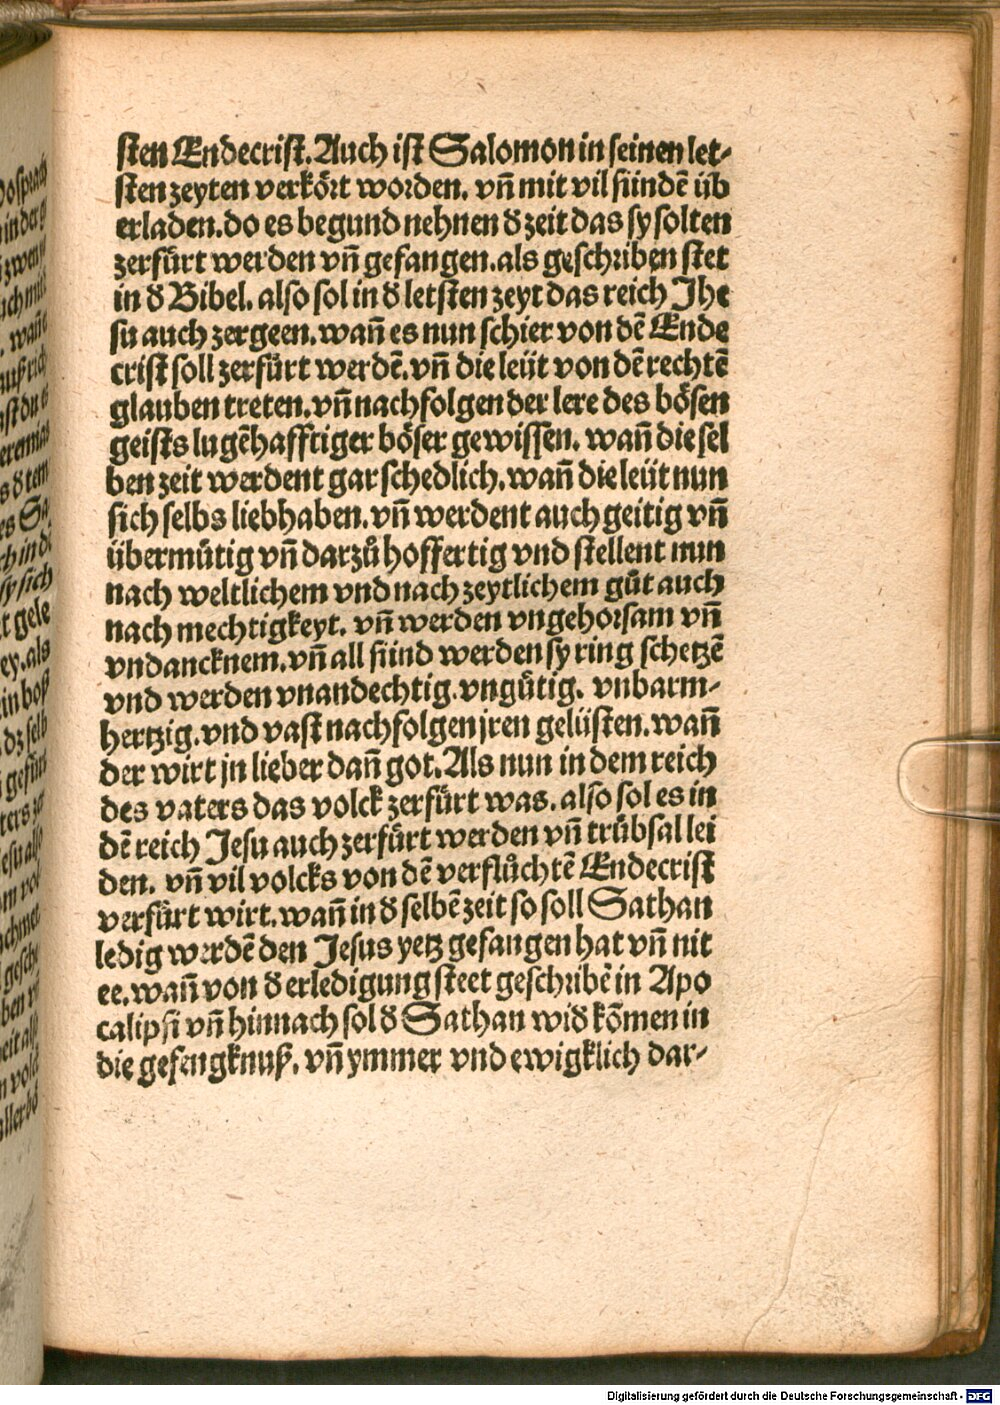 sten Endecrist. Auch ist Salomon in seinen let-
sten zeyten verkört worden. vñ mit vil sündē üb
erladen. do es begund nehnen ð zeit das sy solten
zerfürt werden vñ gefangen. als geschriben stet
in ð Bibel. also sol in ð letsten zeyt das reich Jhe
su auch zergeen. wañ es nun schier von dē Ende
crist soll zerfürt werdē. vñ die leüt von dē rechtē
glauben treten. vñ nachfolgen der lere des bösen
geists lugēhafftiger böser gewissen. wañ die sel
ben zeit werdent gar schedlich. wañ die leüt nun
sich selbs liebhaben. vñ werdent auch geitig vñ
übermütig vñ darzů hoffertig vnd stellent nun
nach weltlichem vnd nach zeytlichem gůt auch
nach mechtigkeyt. vñ werden vngehorsam vñ
vndancknem. vñ all sünd werden sy ring schetzē
vnd werden vnandechtig. vngütig. vnbarm-
hertzig. vnd vast nachfolgen jren gelüsten. wañ
der wirt jn lieber dañ got. Als nun in dem reich
des vaters das volck zerfürt was. also sol es in
dē reich Jesu auch zerfürt werden vñ trübsal lei
den. vñ vil volcks von dē verflůchtē Endecrist
verfürt wirt. wañ in ð selbē zeit so soll Sathan
ledig werdē den Jesus yetz gefangen hat vñ nit
ee. wañ von ð erledigung steet geschribē in Apo
calipsi vñ hinnach sol ð Sathan wið kōmen in
die gefengknuß. vñ ymmer vnd ewigklich dar-
Digitalisierung gefördert durch die Deutsche Forschungsgemeinschaft - DFG